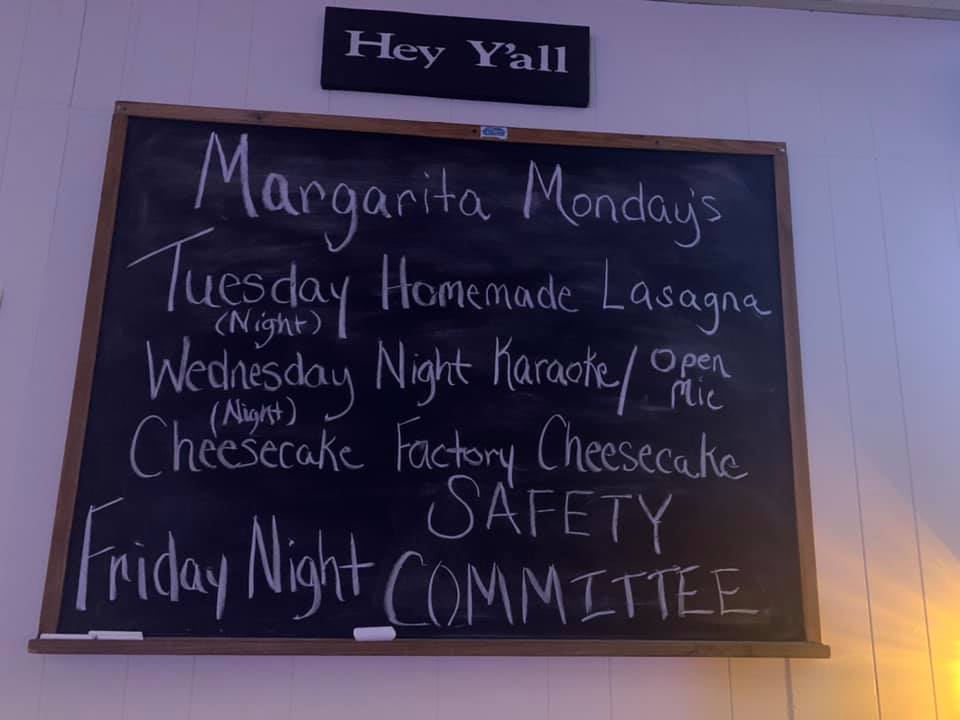 Hey Y'all
Margarita Monday's
Tuesday Homemade Lasagna
(Night)
Wednesday Night Karaoke/ Open Mic
(Night)
Cheesecake Factory Cheesecake
Friday Night SAFETY COMMITTEE